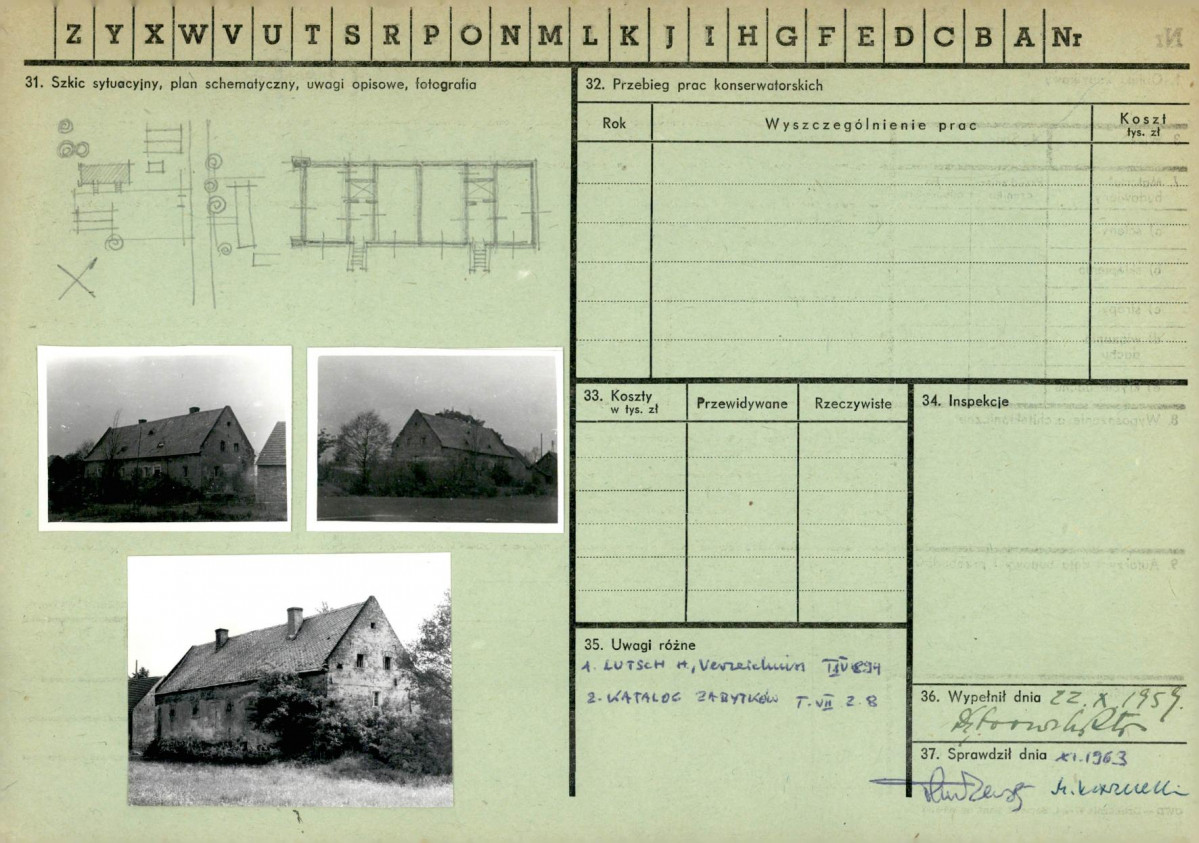 Z Y X W V U T S R P O N M L K J I H G F E D C B A Nr
31. Szkic sytuacyjny, plan schematyczny, uwagi opisowe, fotografia
32. Przebieg prac konserwatorskich
Rok
Wyszczególnienie prac
Koszt
tys. zł
33. Koszty
w tys. zł
Przewidywane
Rzeczywiste
34. Inspekcje
35. Uwagi różne
1. LUTSCH H., Verzeichniss
2. KATALOG ZABYTKÓW T. VII Z. 8
36. Wypełnił dnia 22. X. 1959.
37. Sprawdził dnia XI. 1963